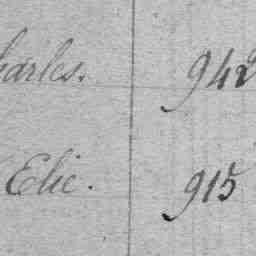 harles. 942
Elie. 915